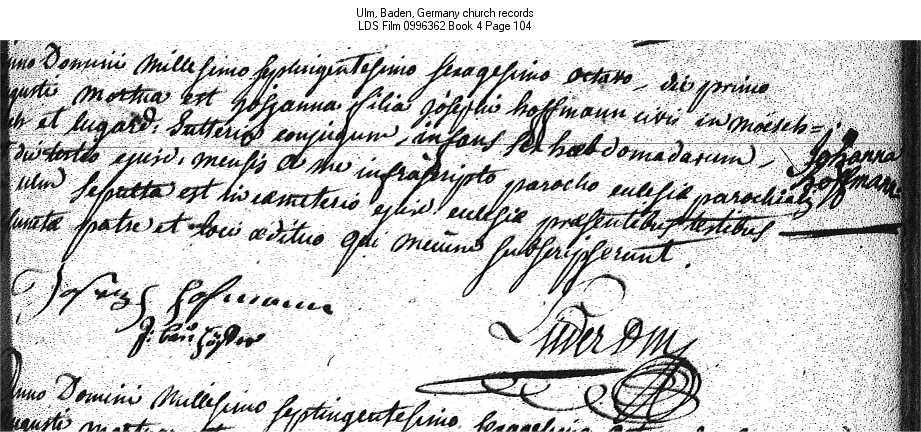 Ulm, Baden, Germany church records
LDS Film 0996362 Book 4 Page 104
nno Domini Millesimo Septingentesimo Sexagesimo octavo, die primo
gusti mortua est Johanna filia Josephi hoffmann civis in moesch=
et Lugard: conjugum, infans sex hebdomadarum,
die tertio ejusd: mensis a me infrascripto parocho ecclesiæ parochialis
ulm sepulta est in cæmeterio ejusd ecclesiæ præsentibus testibus
patre et loci ædituo qui mecum subscripserunt.
Johanna
hoffmann
hofmann
nno Domini Millesimo Septingentesimo Sexagesimo
gusti mortua